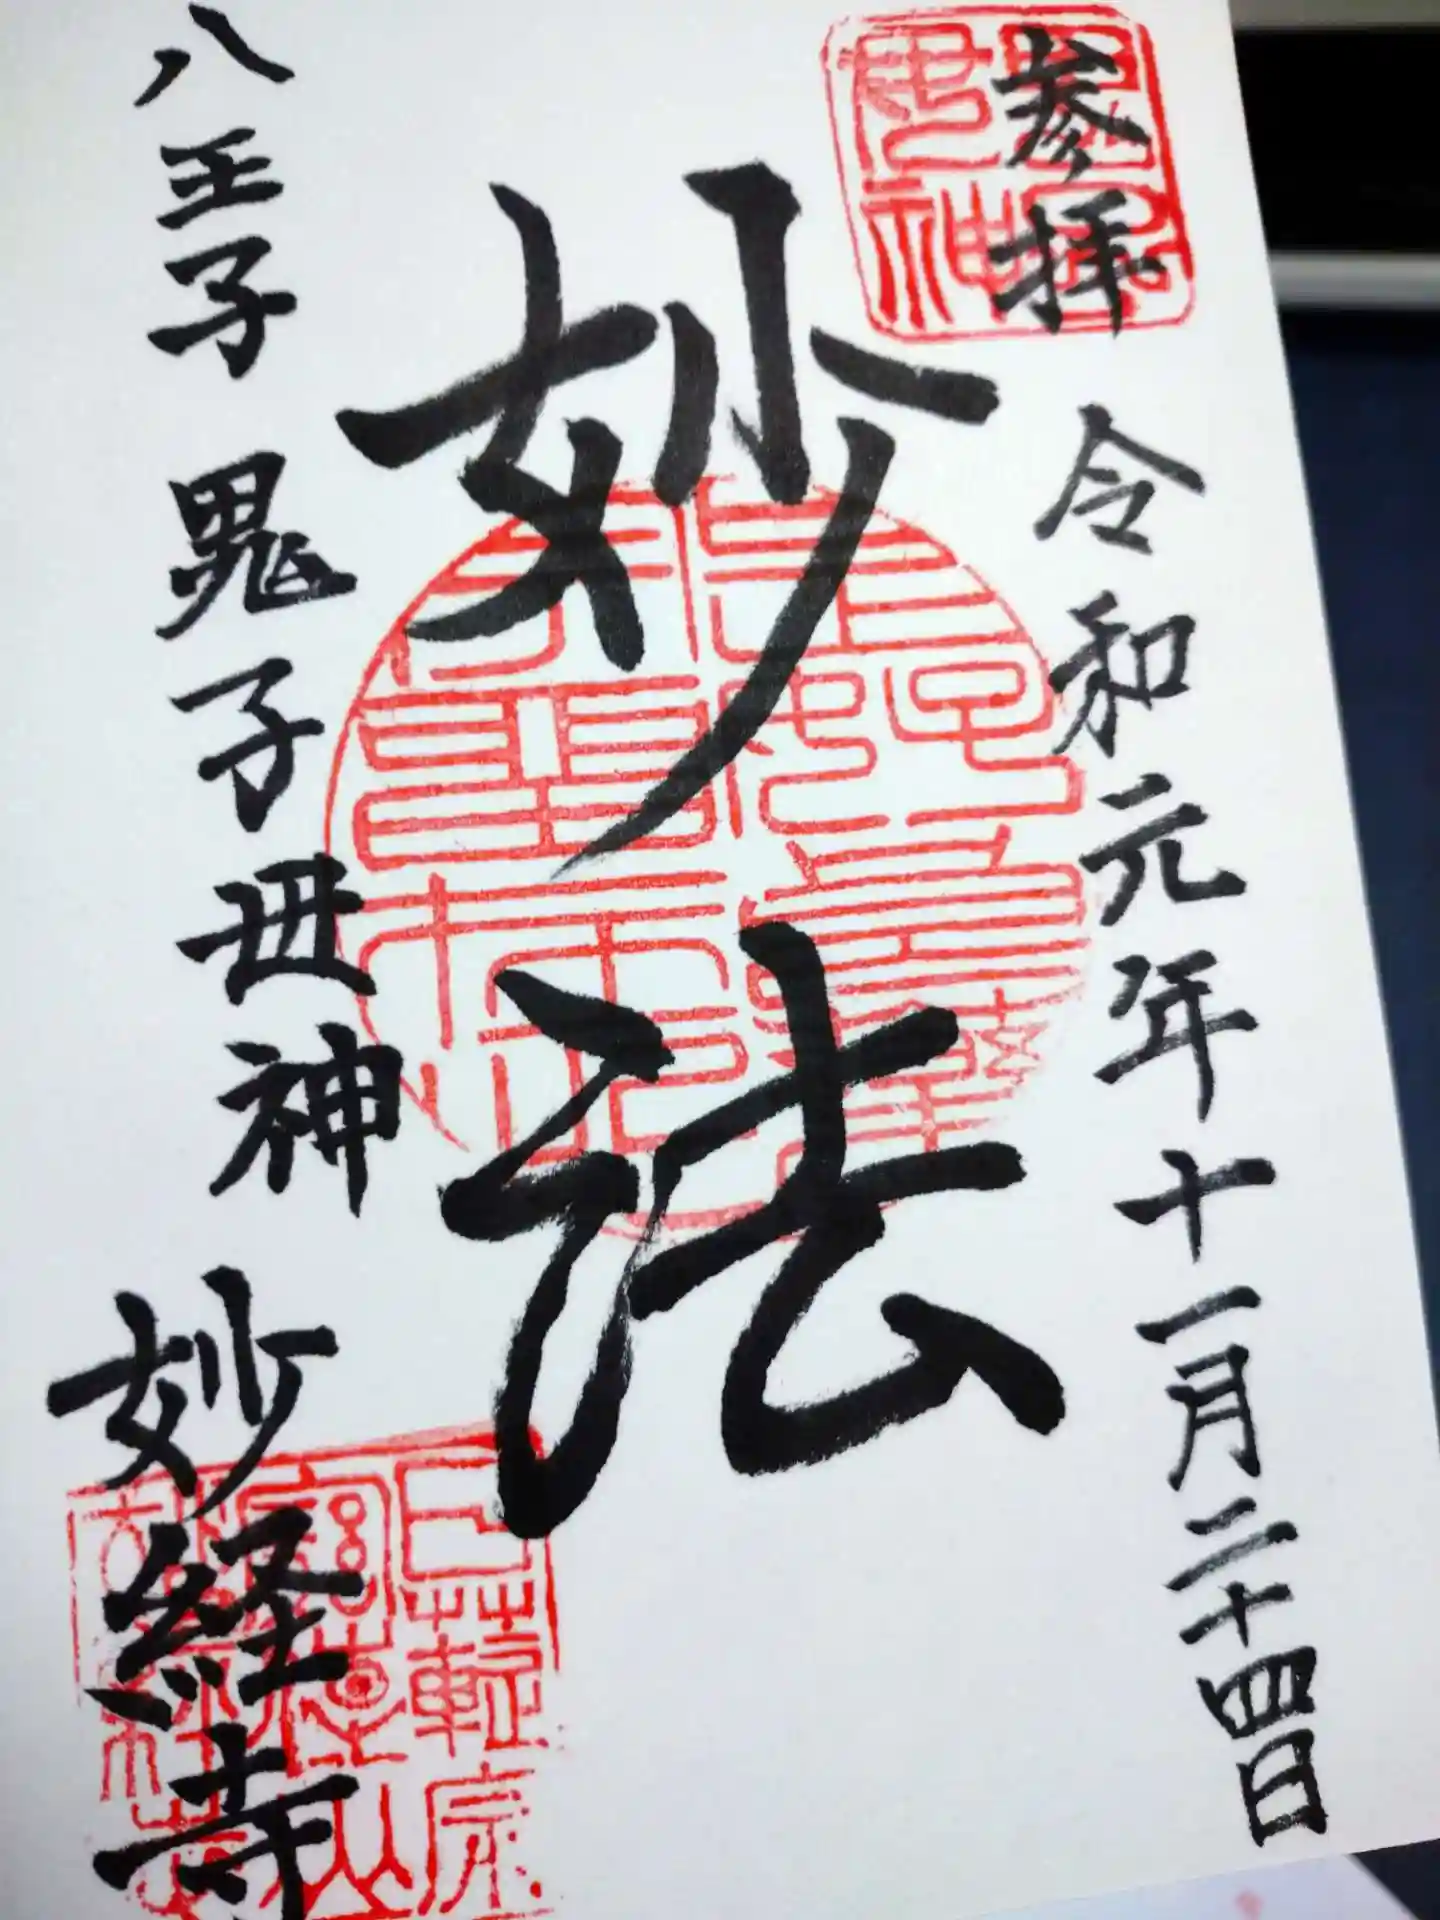 参拝
令和元年十一月二十四日
妙法
八王子 鬼子母神
妙経寺